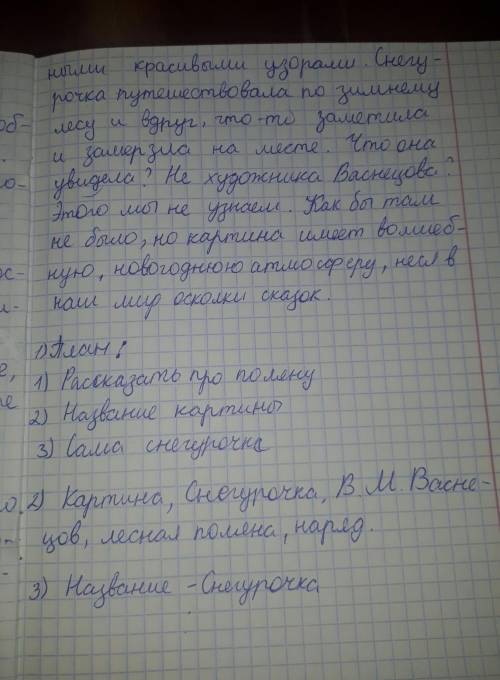 ными красивыми узорами. Снегу-
рочка путешествовала по зимнему
об-
лесу и вдруг, что-то заметила
и замерзла на месте. Что она
ло-
увидела? Не художника Васнецова?
Этого мы не узнаем. Как бы там
не было, но картина имеет волшеб-
ос-
ную, новогоднюю атмосферу, неся в
наш мир осколки сказок.
1) План:
е,
1) Рассказать про поляну
ре
2) Название картины
3) Сама снегурочка
2) Картина, Снегурочка, В. М. Васне-
цов, лесная поляна, наряд.
3) Название - Снегурочка